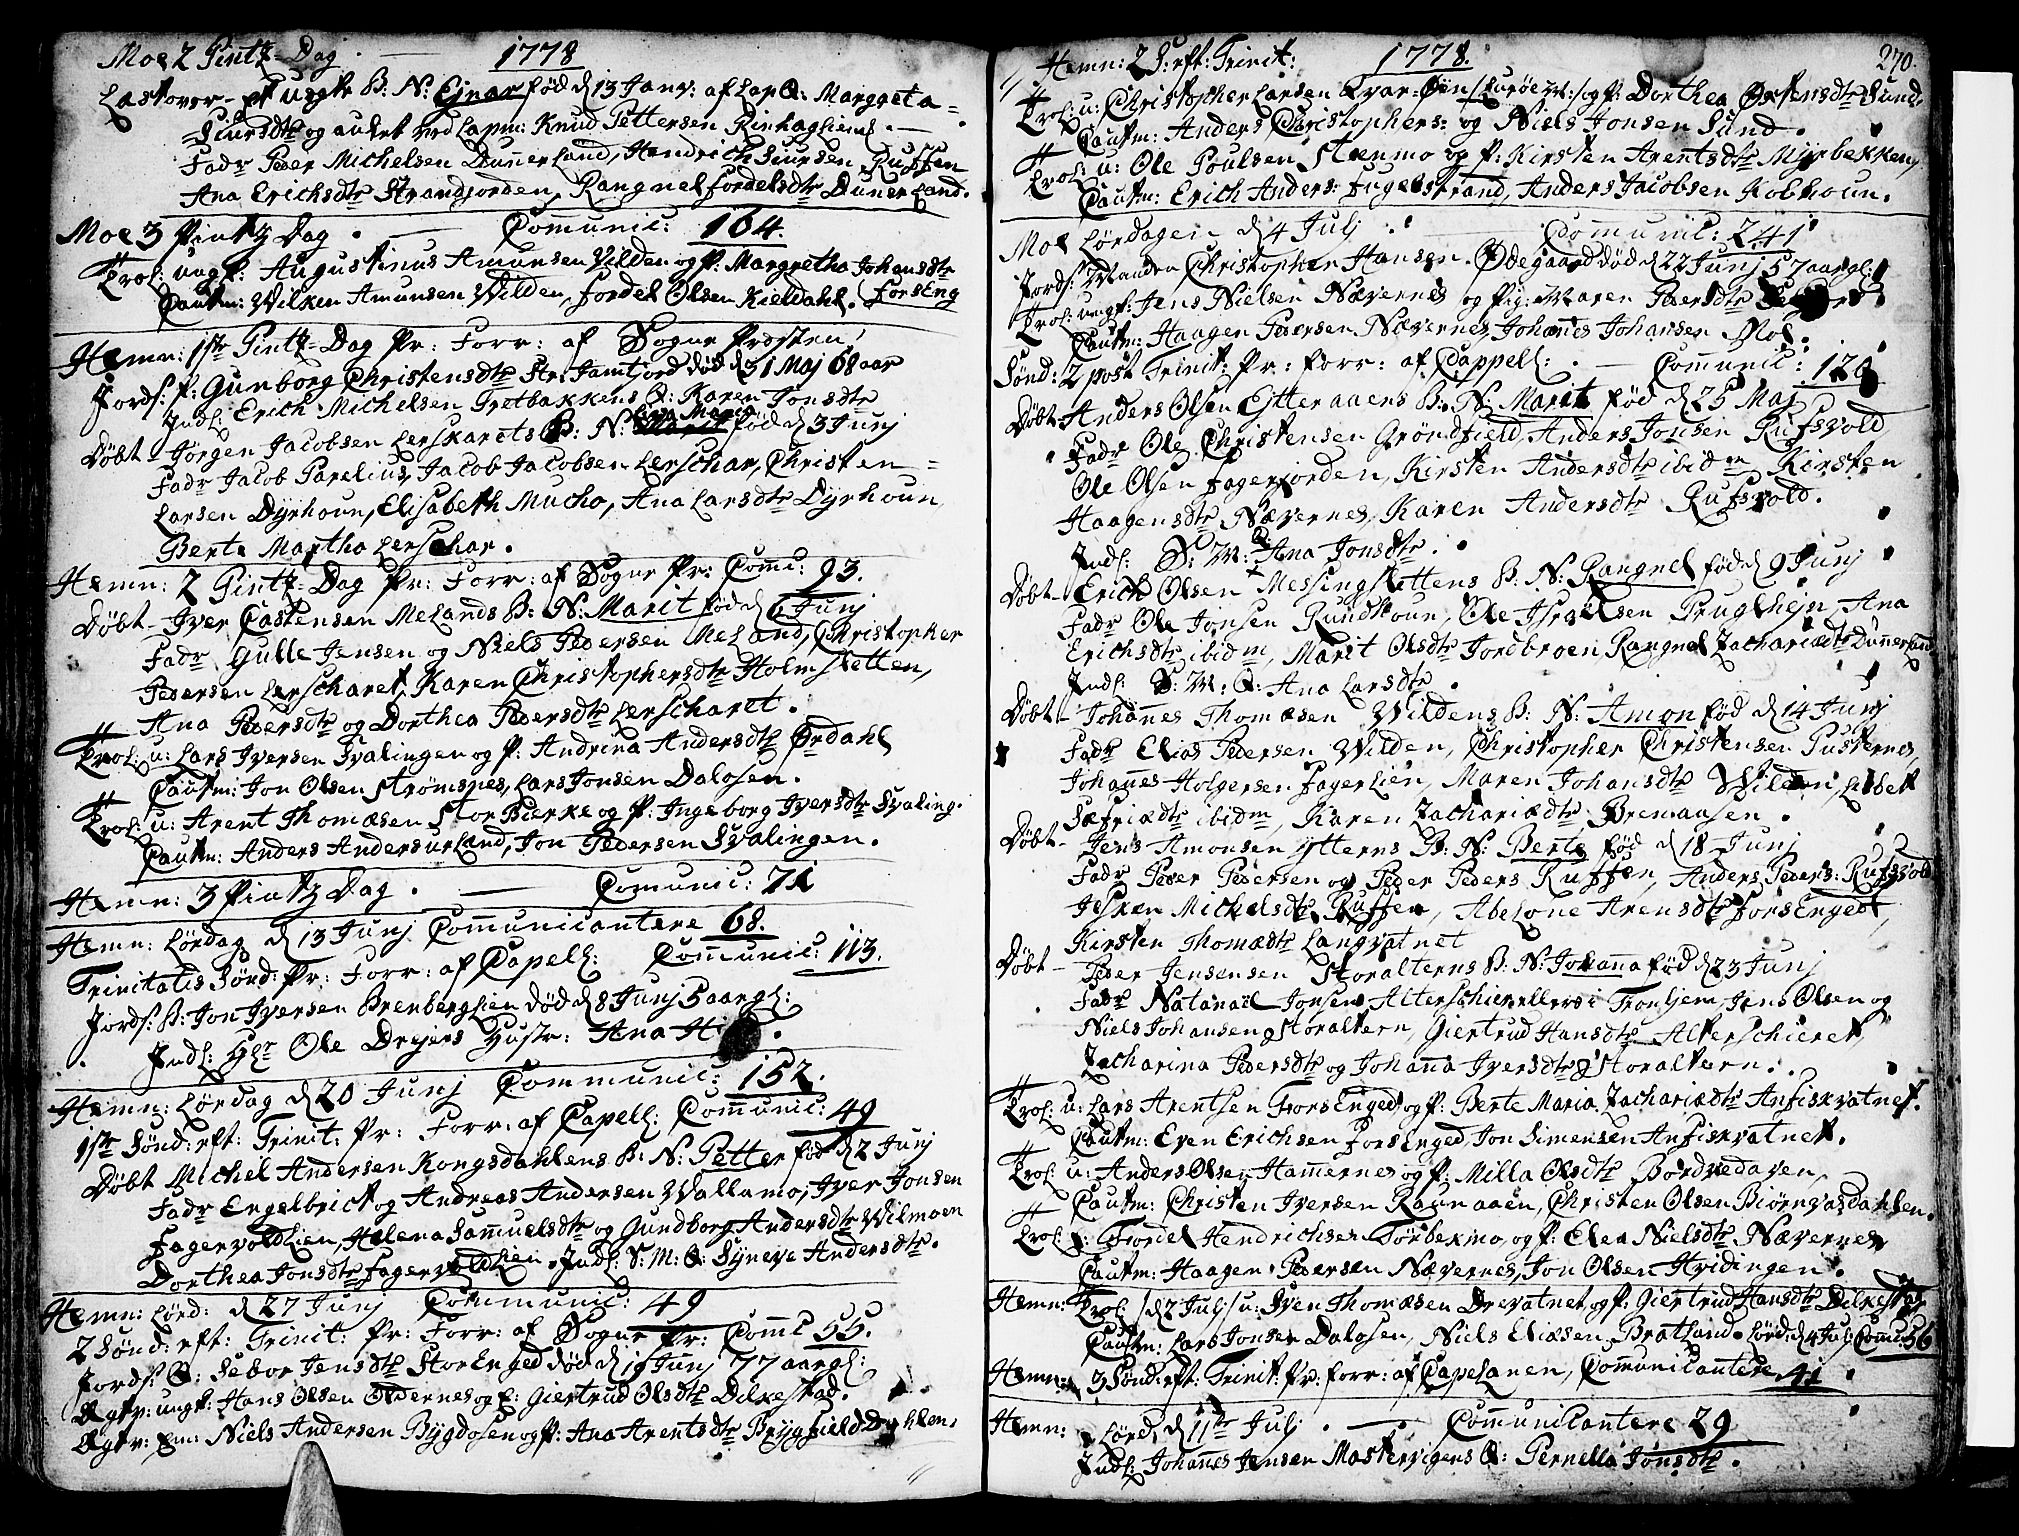 Moe 2 Pintz-Dag 1778
Lastover- et uægte B: N: Ejnar fød d 13 Janv: af Lap Q: Margreta
Siursdtr og auket ved Lapm: Knud Pettersen
Fadr Peder Michelsen Dunnerland, Hendrich Siursen Ruffen
Ana Erichsdtr Strandjorden, Rangnel Fordelsdtr Dunerland.
Moe 3 Pintz Dag. Communic: 164.
Trol: ung K: Augustinus Amunsen Vilden og P: Margretha Johansdtr
Cautm: Wilken Amunsen Wilden, Fordel Olsen Kieldahl. ForsEng
Hemn: 1ste Pintz-Dag Pr: Forr: af Sogne Prosten
Jords: P: Gunborg Christensdtr Str: Jamtjord død d 31 Maj 68 aar
Indl: Erich Michelsen Gretbakkens Q: Karen Jonsdtr
Døbt - Jørgen Jacobsen Lerskarets B: N: fød d 3 Junj
Fadr Jacob Parelius, Jacob Jacobsen Lerschar, Christen
Larsen Dyrhoun, Elisabeth Mucho, Ana Larsdtr Dyrhoun,
Berte Martha Lerschar.
Hemn: 2 Pintz-Dag Pr: Forr: af Sogne Pr: Comu: 93.
Døbt - Iver Castensen Melands B: N: Marit fød d 6 Junj
Fadr Gulle Jensen og Niels Pedersen Meland, Christopher
Pedersen Lerscharet, Karen Christophersdtr Holmsletten,
Ana Pedersdtr og Dorthea Pedersdtr Lerscharet.
Trol: u: Lars Iversen Svalingen og P: Andrina Andersdtr Ørdahl
Cautm: Jon Olsen Strømsnes, Lars Jonsen Dalosen.
Trol: u: Arent Thomæsen StorBierke og P: Ingeborg Iversdtr Svaling.
Cautm: Anders Andersurland, Jon Pedersen Svalingen.
Hemn: 3 Pintz Dag. Comunic: 71
Hemn: Lørdag d 13 Junj Communicantere 68.
Trinitatis Sønd: Pr: Forr: af Capell: Communic: 113.
Jords: B: Jon Iversen Brenberglien død d 8 Junj 5 aar gl:
Indl: Hr Ole Drejers Hustr: Ana
Hemn: Lørdag d 20 Junj Communic: 152.
1ste Sønd: eft: Trinit: Pr: Forr: af Capell: Communic: 49
Døbt Michel Andersen Kongsdahlens B: N: Petter fød d 2 Junj
Fadr Engelbrict og Andreas Andersen Wallamo, Iver Jonsen
Fagervoldlien, Helena Samuelsdtr og Gundborg Andersdtr Wilmoen
Dorthea Jonsdtr Fagervoldlien. Indl: S: M: Q: Synneve Andersdtr.
Hemn: Lørd: d 27 Junj Communic: 49
2 Sønd: eft: Trinit: Pr: Forr: af Sogne Pr: Comc 55.
Jords: Q: Sebor Jensdtr StorEnged død d 16 Junj 77 aar gl:
Ægtv: ung K: Hans Olsen Oldernes og P: Giertrud Olsdtr Dilkestad.
Ægtv: Em: Niels Andersen Bygdosen og P: Ana Arentsdtr Brygfieldd Dahlen
Hemn: 2 S: eft: Trinit: 1778. 270.
Trol: u: Christopher Larsen Qvar-Øen /Lurøe M:/ og P: Dorthea Østensdtr Sund
Cautm: Anders Christophers: og Niels Jonsen Sund.
Trol: u: Ole Poulsen Stenmo og P: Kirsten Arentsdtr Myrbekken,
Cautm: Erich Anders: Fugelstrand, Anders Jacobsen Kobhoun.
Moe Lørdagen d 4 Julj Communic: 241
Jords: Manden Christopher Hansen Ødegaard død d 22 Junj 57 aar gl:
Trol: ung K: Jens Nielsen Nævernes og Pig: Maren Pedersdtr
Cautm: Haagen Pedersen Nævernes, Johanes Johansen Moe.
Sønd: 2 post Trinit: Pr: forr: af Cappell: Communic: 120
Døbt Anders Olsen Ytteraaens B: N: Marit fød d 25 Maj
Fadr Ole Christensen Grøndfield, Anders Jonsen Rufsvold
Ole Olsen Fagerjorden, Kirsten Andersdtr ibidm Kirsten
Haagensdtr Nævernes, Karen Andersdtr Rufsvold.
Indl: S: M: Q: Ana Jonsdtr.
Døbt - Erich Olsen Messingslettens B: N: Rangnel fød d 9 Junj
Fadr Ole Jonsen Rundhoun, Ole Israelsen Pruglhejn, Ana
Erichsdtr ibidm, Marit Olsdtr Jordbroen, Rangnel Zachariædtr Dunnerland
Indl: S: M: Q: Ana Larsdtr.
Døbt - Johannes Thomæsen Wildens B: N: Amon fød d 14 Junj
Fadr Elias Pedersen Wilden, Christopher Christensen Pusternes,
Johannes Holgersen Fagerlien, Maren Johansdtr Wilden, Lisbet
Sæfriædtr ibidm, Karen Zachariædtr Bremaasen.
Døbt - Jens Amonsen Ytterns B: N: Berte fød d 18 Junj
Fadr Peder Pedersen og Peder Peders Ruffen, Anders Peders: Rufsvold
Jesken Michelsdtr Ruffen, Abelone Arensdtr ForsEnget,
Kirsten Thomædtr Langvatnet
Døbt - Peder Jensensen Storalterns B: N: Johana fød d 23 Junj
Fadr Natanaël Jonsen Alterschier ellers i Tronhjem, Jens Olsen og
Niels Johansen Storaltern, Giertrud Hansdtr Alterschieret,
Zacharina Pedersdtr og Johana Iversdtr Storaltern.
Trol: u: Lars Arentsen ForsEnged og P: Berte Maria Zachariædtr Anfiskvatnet.
Cautm: Even Erichsen ForsEnged, Jon Simensen Anfiskvatnet.
Trol: u: Anders Olsen Hamernes og P: Milla Olsdtr Bordvedaven,
Cautm: Christen Iversen Raunaaen, Christen Olsen Biørnvasdahlen.
Trol: Fordel Hendrichsen Tørbekmo, og P: Elen Nielsdtr Nævernes
Cautm: Haagen Pedersen Nævernes, Jon Olsen Hvidingen.
Hemn: Trol: /d 2 Julj/ u: Iven Thomæsen Drevatnet og P: Giertrud Hansdtr Dilkestad
Cautm: Lars Jonsen Dalosen, Niels Eliæsen Bratland. Lørd: d 4 Julj Comu: 56
Hemn: 3 Sønd: eft: Trinit: Pr: forr: af Capelanen, Communicantere 41
Hemn: Lørd: d 11te Julj. Communicantere 29
Indl: Johannes Jensen Mastervigens Q: Pernella Jonsdtr.